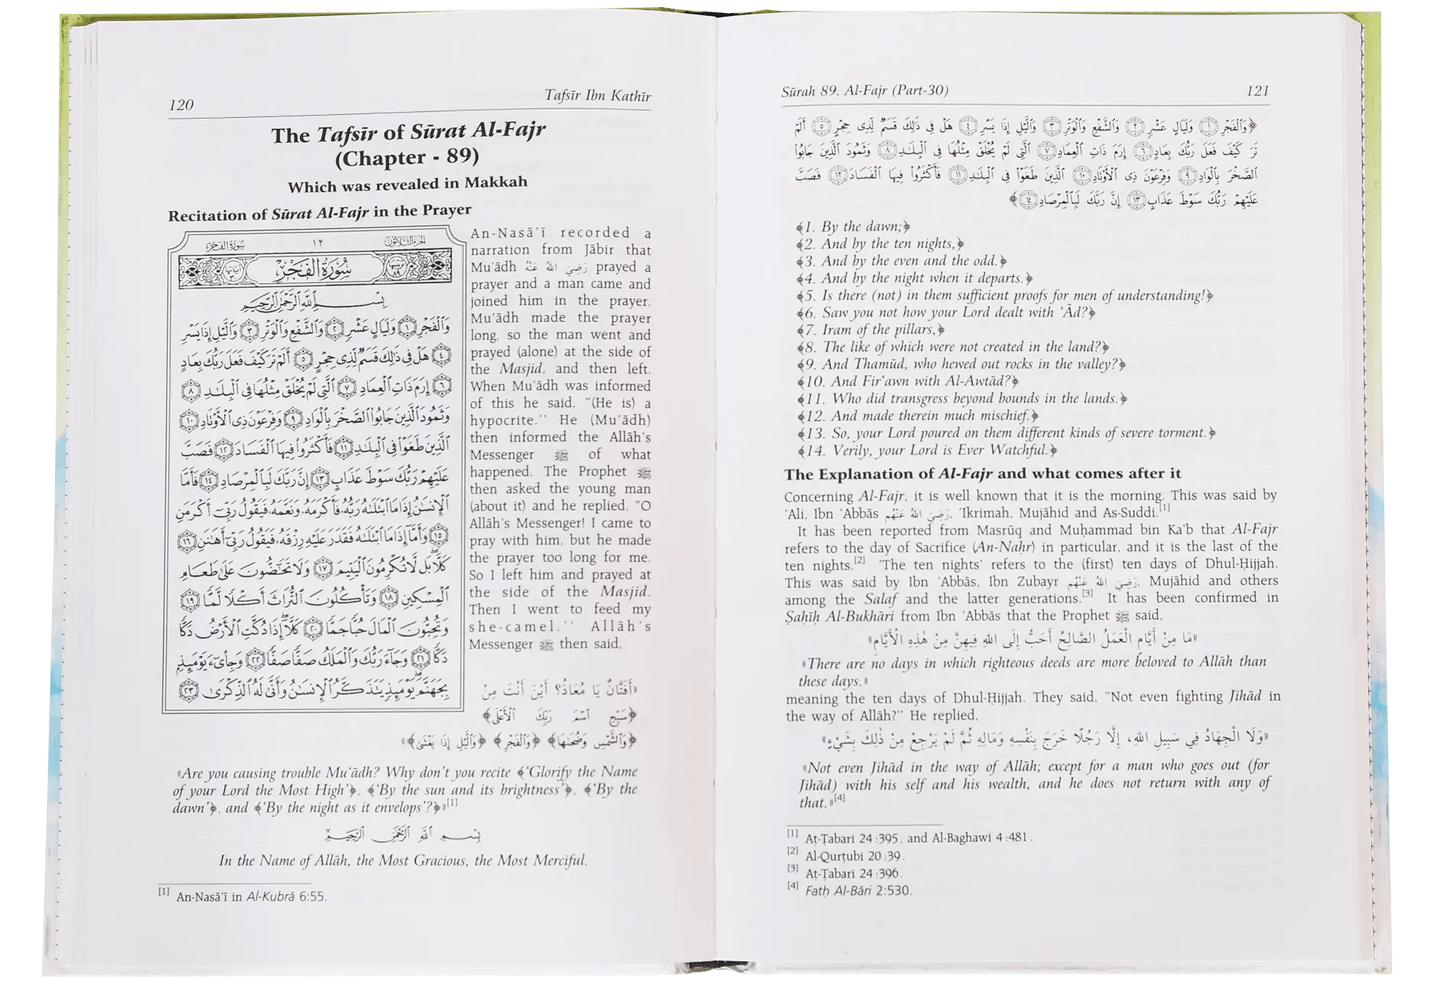 120
Tafsīr Ibn Kathīr
The Tafsīr of Sūrat Al-Fajr
(Chapter - 89)
Which was revealed in Makkah
Recitation of Sūrat Al-Fajr in the Prayer
سُورَةُ الفَجْرِ
١٢
الجزء الثلاثون
سُورَةُ الْفَجْرِ
بِسْمِ اللَّهِ الرَّحْمَٰنِ الرَّحِيمِ
وَالْفَجْرِ ١ وَلَيَالٍ عَشْرٍ ٢ وَالشَّفْعِ وَالْوَتْرِ ٣ وَاللَّيْلِ إِذَا يَسْرِ
٤ هَلْ فِي ذَٰلِكَ قَسَمٌ لِذِي حِجْرٍ ٥ أَلَمْ تَرَ كَيْفَ فَعَلَ رَبُّكَ بِعَادٍ
٦ إِرَمَ ذَاتِ الْعِمَادِ ٧ الَّتِي لَمْ يُخْلَقْ مِثْلُهَا فِي الْبِلَادِ ٨
وَثَمُودَ الَّذِينَ جَابُوا الصَّخْرَ بِالْوَادِ ٩ وَفِرْعَوْنَ ذِي الْأَوْتَادِ ١٠
الَّذِينَ طَغَوْا فِي الْبِلَادِ ١١ فَأَكْثَرُوا فِيهَا الْفَسَادَ ١٢ فَصَبَّ
عَلَيْهِمْ رَبُّكَ سَوْطَ عَذَابٍ ١٣ إِنَّ رَبَّكَ لَبِالْمِرْصَادِ ١٤ فَأَمَّا
الْإِنسَانُ إِذَا مَا ابْتَلَاهُ رَبُّهُ فَأَكْرَمَهُ وَنَعَّمَهُ فَيَقُولُ رَبِّي أَكْرَمَنِ
١٥ وَأَمَّا إِذَا مَا ابْتَلَاهُ فَقَدَرَ عَلَيْهِ رِزْقَهُ فَيَقُولُ رَبِّي أَهَانَنِ ١٦
كَلَّا بَل لَّا تُكْرِمُونَ الْيَتِيمَ ١٧ وَلَا تَحَاضُّونَ عَلَىٰ طَعَامِ
الْمِسْكِينِ ١٨ وَتَأْكُلُونَ التُّرَاثَ أَكْلًا لَّمًّا ١٩
وَتُحِبُّونَ الْمَالَ حُبًّا جَمًّا ٢٠ كَلَّا إِذَا دُكَّتِ الْأَرْضُ دَكًّا
دَكًّا ٢١ وَجَاءَ رَبُّكَ وَالْمَلَكُ صَفًّا صَفًّا ٢٢ وَجِيءَ يَوْمَئِذٍ
بِجَهَنَّمَ يَوْمَئِذٍ يَتَذَكَّرُ الْإِنسَانُ وَأَنَّىٰ لَهُ الذِّكْرَىٰ ٢٣
An-Nasā'ī recorded a
narration from Jābir that
Mu'ādh رَضِيَ اللهُ عَنْهُ prayed a
prayer and a man came and
joined him in the prayer.
Mu'ādh made the prayer
long, so the man went and
prayed (alone) at the side of
the Masjid, and then left.
When Mu'ādh was informed
of this he said, "(He is) a
hypocrite." He (Mu'ādh)
then informed the Allāh's
Messenger ﷺ of what
happened. The Prophet ﷺ
then asked the young man
(about it) and he replied, "O
Allāh's Messenger! I came to
pray with him, but he made
the prayer too long for me.
So I left him and prayed at
the side of the Masjid.
Then I went to feed my
she-camel." Allāh's
Messenger ﷺ then said,
«أَفَتَّانٌ يَا مُعَاذُ؟ أَيْنَ أَنْتَ مِنْ
﴿سَبِّحِ اسْمَ رَبِّكَ الْأَعْلَى﴾
﴿وَالشَّمْسِ وَضُحَاهَا﴾ ﴿وَالْفَجْرِ﴾ ﴿وَاللَّيْلِ إِذَا يَغْشَى﴾»
«Are you causing trouble Mu'ādh? Why don't you recite ﴾'Glorify the Name
of your Lord the Most High'﴿, ﴾'By the sun and its brightness'﴿, ﴾'By the
dawn'﴿, and ﴾'By the night as it envelops'?﴿»[1]
بِسْمِ اللَّهِ الرَّحْمَٰنِ الرَّحِيمِ
In the Name of Allāh, the Most Gracious, the Most Merciful.
[1] An-Nasā'ī in Al-Kubrā 6:55.
Sūrah 89. Al-Fajr (Part-30)
121
﴿وَالْفَجْرِ ١ وَلَيَالٍ عَشْرٍ ٢ وَالشَّفْعِ وَالْوَتْرِ ٣ وَاللَّيْلِ إِذَا يَسْرِ ٤ هَلْ فِي ذَٰلِكَ قَسَمٌ لِذِي حِجْرٍ ٥ أَلَمْ
تَرَ كَيْفَ فَعَلَ رَبُّكَ بِعَادٍ ٦ إِرَمَ ذَاتِ الْعِمَادِ ٧ الَّتِي لَمْ يُخْلَقْ مِثْلُهَا فِي الْبِلَادِ ٨ وَثَمُودَ الَّذِينَ جَابُوا
الصَّخْرَ بِالْوَادِ ٩ وَفِرْعَوْنَ ذِي الْأَوْتَادِ ١٠ الَّذِينَ طَغَوْا فِي الْبِلَادِ ١١ فَأَكْثَرُوا فِيهَا الْفَسَادَ ١٢ فَصَبَّ
عَلَيْهِمْ رَبُّكَ سَوْطَ عَذَابٍ ١٣ إِنَّ رَبَّكَ لَبِالْمِرْصَادِ ١٤﴾
﴾1. By the dawn;﴿
﴾2. And by the ten nights,﴿
﴾3. And by the even and the odd.﴿
﴾4. And by the night when it departs.﴿
﴾5. Is there (not) in them sufficient proofs for men of understanding!﴿
﴾6. Saw you not how your Lord dealt with 'Ād?﴿
﴾7. Iram of the pillars,﴿
﴾8. The like of which were not created in the land?﴿
﴾9. And Thamūd, who hewed out rocks in the valley?﴿
﴾10. And Fir'awn with Al-Awtād?﴿
﴾11. Who did transgress beyond bounds in the lands.﴿
﴾12. And made therein much mischief.﴿
﴾13. So, your Lord poured on them different kinds of severe torment.﴿
﴾14. Verily, your Lord is Ever Watchful.﴿
The Explanation of Al-Fajr and what comes after it
Concerning Al-Fajr, it is well known that it is the morning. This was said by
'Ali, Ibn 'Abbās رَضِيَ اللهُ عَنْهُم, 'Ikrimah, Mujāhid and As-Suddi.[1]
It has been reported from Masrūq and Muḥammad bin Ka'b that Al-Fajr
refers to the day of Sacrifice (An-Naḥr) in particular, and it is the last of the
ten nights.[2] 'The ten nights' refers to the (first) ten days of Dhul-Ḥijjah.
This was said by Ibn 'Abbās, Ibn Zubayr رَضِيَ اللهُ عَنْهُم, Mujāhid and others
among the Salaf and the latter generations.[3] It has been confirmed in
Ṣaḥīḥ Al-Bukhāri from Ibn 'Abbās that the Prophet ﷺ said,
«مَا مِنْ أَيَّامٍ الْعَمَلُ الصَّالِحُ أَحَبُّ إِلَى اللهِ فِيهِنَّ مِنْ هٰذِهِ الْأَيَّامِ»
«There are no days in which righteous deeds are more beloved to Allāh than
these days.»
meaning the ten days of Dhul-Ḥijjah. They said, "Not even fighting Jihād in
the way of Allāh?" He replied,
«وَلَا الْجِهَادُ فِي سَبِيلِ اللهِ، إِلَّا رَجُلًا خَرَجَ بِنَفْسِهِ وَمَالِهِ ثُمَّ لَمْ يَرْجِعْ مِنْ ذَلِكَ بِشَيْءٍ»
«Not even Jihād in the way of Allāh; except for a man who goes out (for
Jihād) with his self and his wealth, and he does not return with any of
that.»[4]
[1] Aṭ-Ṭabari 24:395, and Al-Baghawi 4:481.
[2] Al-Qurṭubi 20:39.
[3] Aṭ-Ṭabari 24:396.
[4] Fatḥ Al-Bāri 2:530.